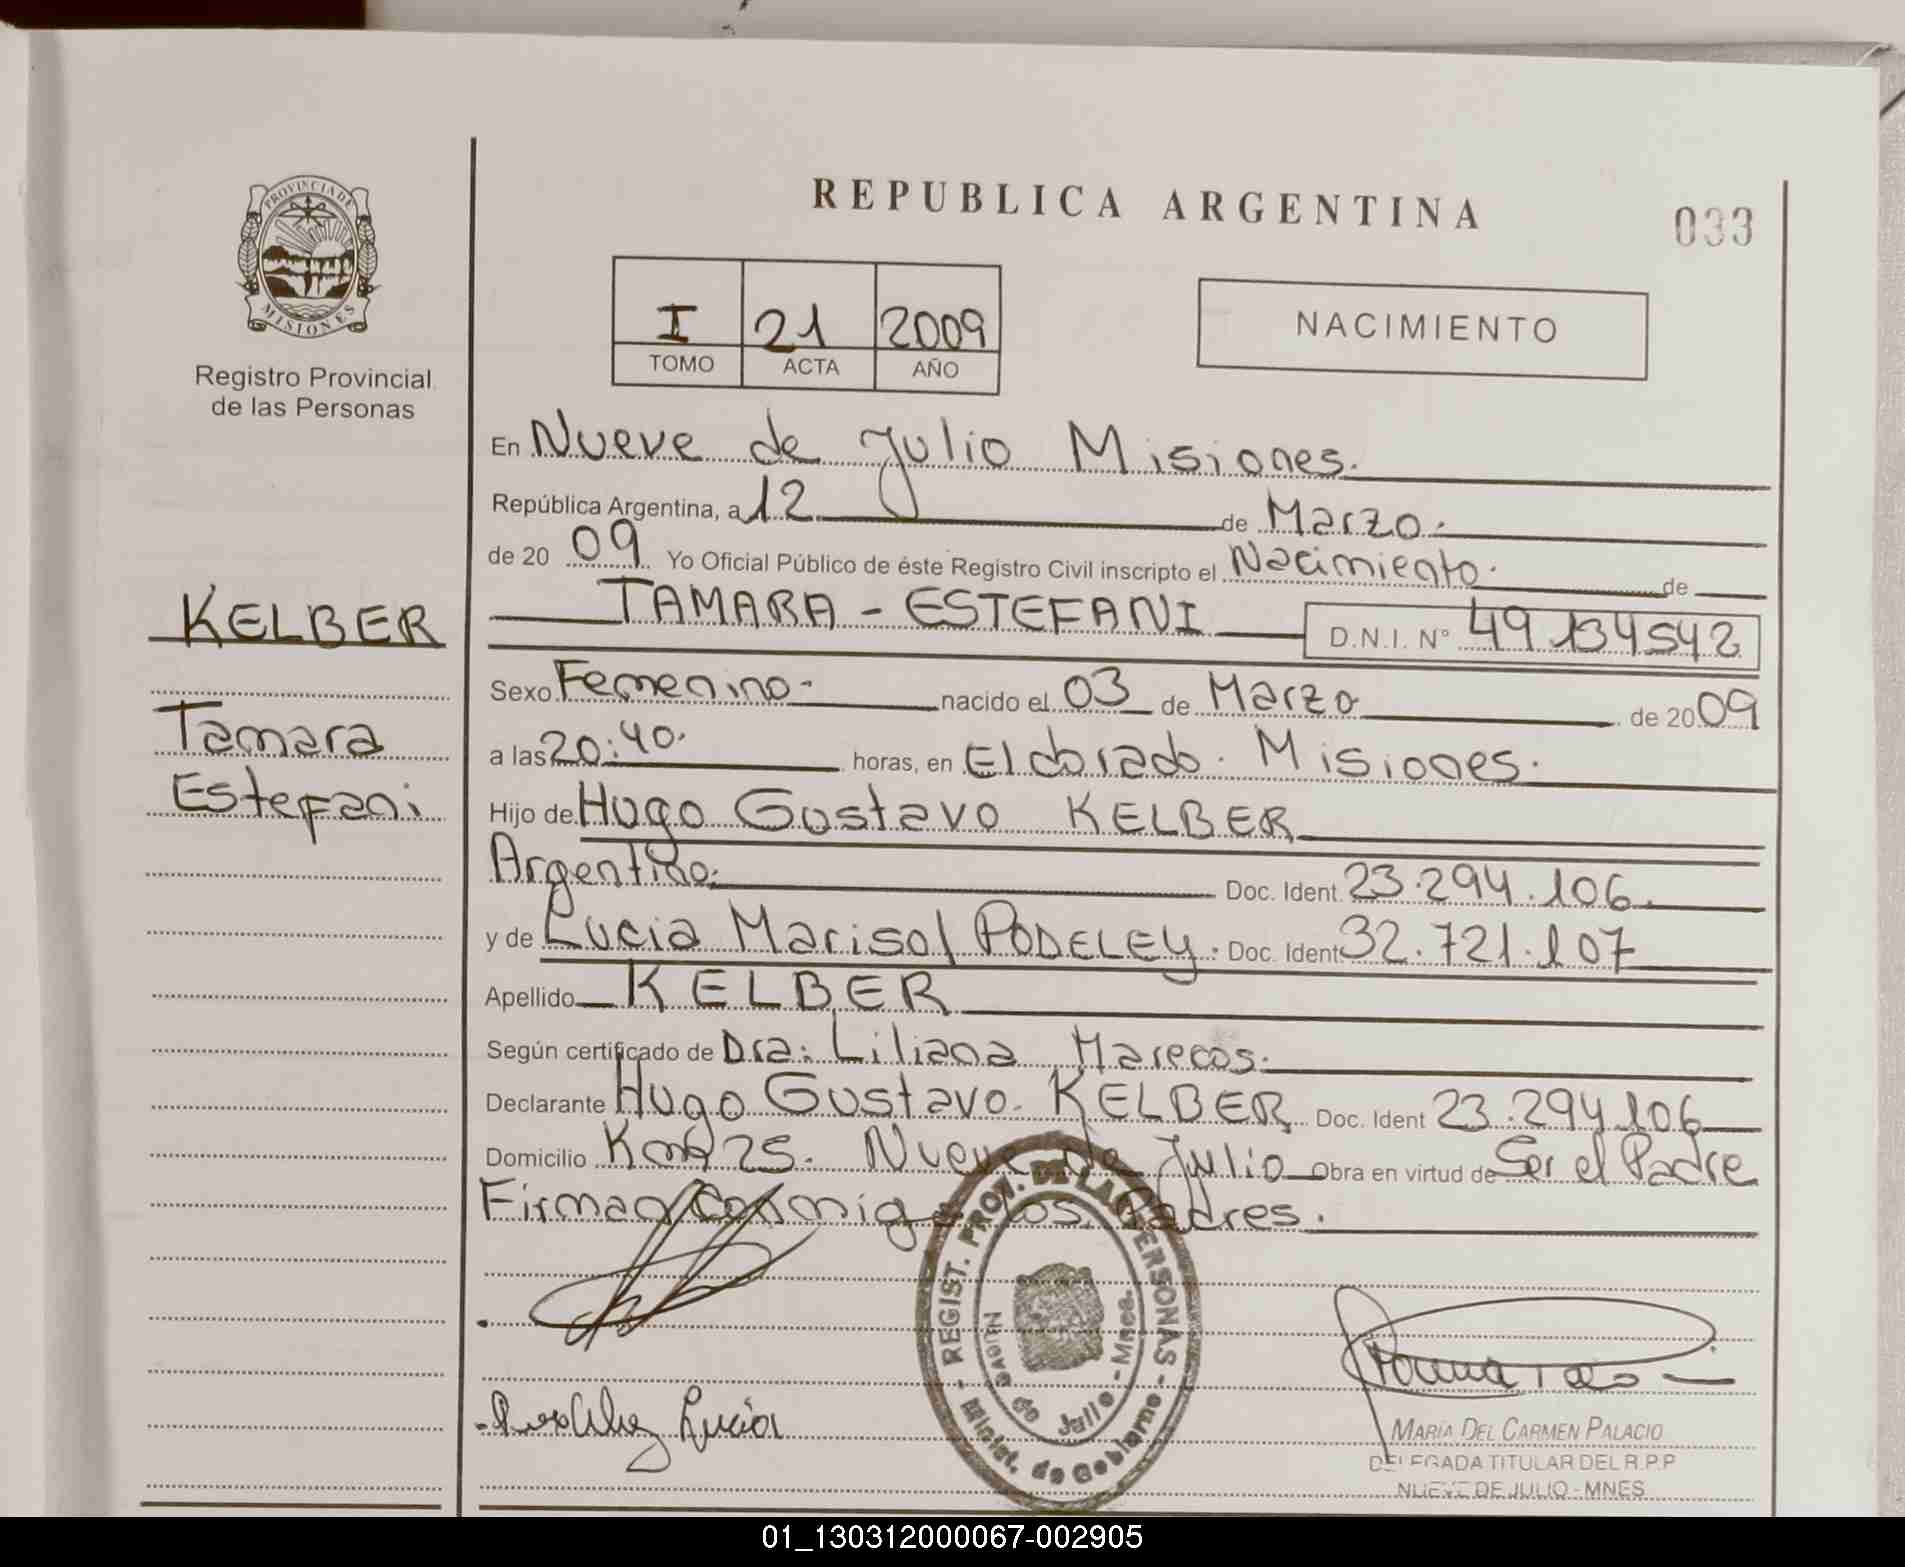 REPUBLICA ARGENTINA
033
PROVINCIA DE
MISIONES
Registro Provincial
de las Personas
I 21 2009
TOMO ACTA AÑO
NACIMIENTO
En Nueve de Julio Misiones.
República Argentina, a 12 de Marzo.
de 20 09 Yo Oficial Público de éste Registro Civil inscripto el Nacimiento. de
TAMARA - ESTEFANI D.N.I. N° 49134542
KELBER
Tamara
Estefani
Sexo Femenino. nacido el 03 de Marzo de 20 09
a las 20:40. horas, en Eldorado. Misiones.
Hijo de Hugo Gustavo KELBER
Argentino. Doc. Ident. 23.294.106.
y de Lucia Marisol PODELEY. Doc. Ident 32.721.107
Apellido KELBER
Según certificado de Dra. Liliana Marecos.
Declarante Hugo Gustavo. KELBER Doc. Ident 23.294.106
Domicilio 25. Nueve de Julio Obra en virtud de Ser el Padre
Firman Conmigo los Padres.
REGIST. PROV. DE LAS PERSONAS
Nueve de Julio - Mnes.
Minist. de Gobierno
Lucia
MARÍA DEL CARMEN PALACIO
DELEGADA TITULAR DEL R.P.P
NUEVE DE JULIO - MNES
01_130312000067-002905